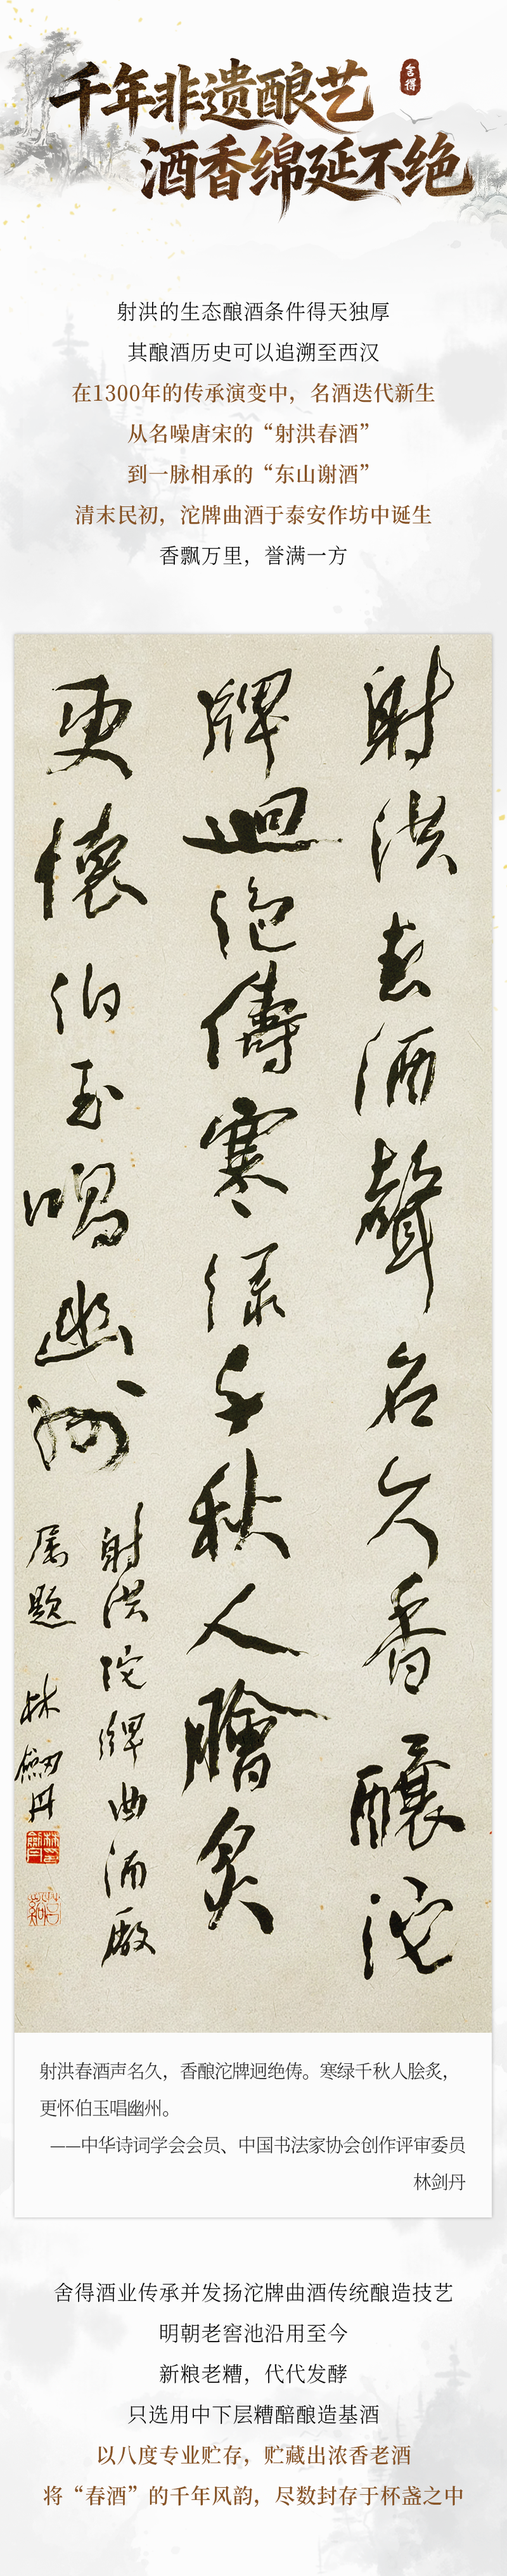 千年非遗酿艺
舍得
酒香绵延不绝
射洪的生态酿酒条件得天独厚
其酿酒历史可以追溯至西汉
在1300年的传承演变中，名酒迭代新生
从名噪唐宋的“射洪春酒”
到一脉相承的“东山谢酒”
清末民初，沱牌曲酒于泰安作坊中诞生
香飘万里，誉满一方
射洪春酒聲名久香釀沱
牌迴絶儔寒绿千秋人膾炙
更懷伯玉唱幽州
射洪沱牌曲酒廠
属题 林劍丹
射洪春酒声名久，香酿沱牌迥绝俦。寒绿千秋人脍炙，
更怀伯玉唱幽州。
——中华诗词学会会员、中国书法家协会创作评审委员
林剑丹
舍得酒业传承并发扬沱牌曲酒传统酿造技艺
明朝老窖池沿用至今
新粮老糟，代代发酵
只选用中下层糟醅酿造基酒
以八度专业贮存，贮藏出浓香老酒
将“春酒”的千年风韵，尽数封存于杯盏之中